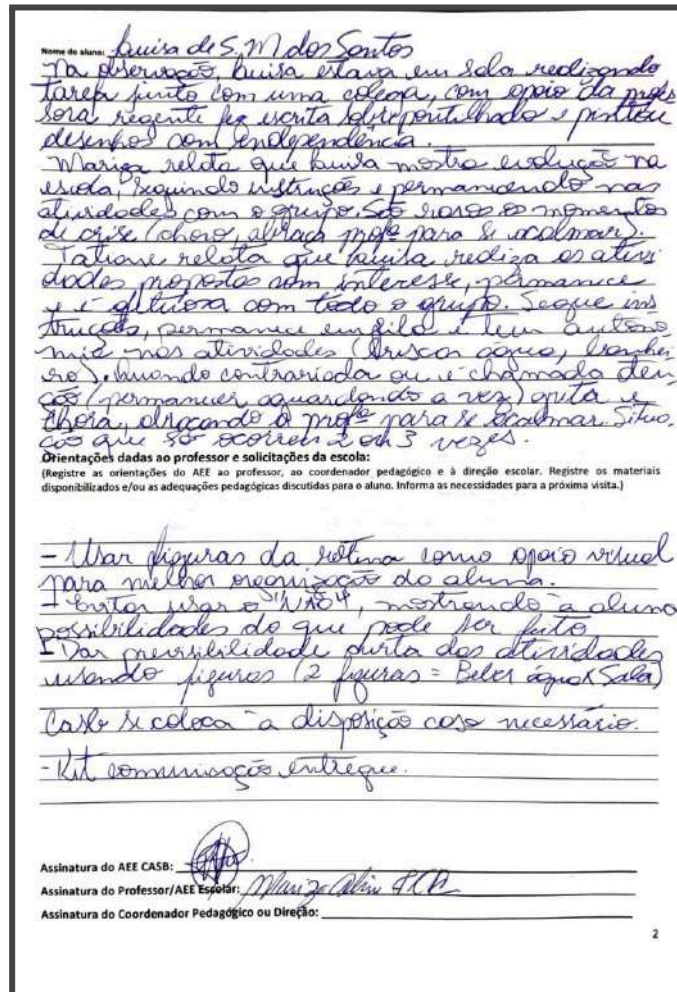 Nome do aluno: Luisa de S. M. dos Santos
Na observação, Luisa estava em sala realizando
tarefa junto com uma colega, com apoio da profes
sora regente fez escrita sobrepontilhado e pintou
desenhos com independência.
Mariza relata que Luisa mostra evolução na
escola, seguindo instruções e permanecendo nas
atividades com o grupo. São raros os momentos
de crise (choro, abraça profª para se acalmar).
Tatiane relata que Luisa realiza as ativi
dades propostas com interesse, permanece
e é afetuosa com todo o grupo. Segue ins
truções, permanece em fila e tem autono
mia nas atividades (buscar água, banhei
ro). Quando contrariada ou é chamada aten
ção (permanecer aguardando a vez) grita e
chora, abraçando a profª para se acalmar. Situa
ção que só ocorreu 2 ou 3 vezes.
Orientações dadas ao professor e solicitações da escola:
(Registre as orientações do AEE ao professor, ao coordenador pedagógico e à direção escolar. Registre os materiais
disponibilizados e/ou as adequações pedagógicas discutidas para o aluno. Informa as necessidades para a próxima visita.)
- Usar figuras da rotina como apoio visual
para melhor organização da aluna.
- Evitar usar o "NÃO", mostrando à aluna
possibilidades do que pode ser feito
- Dar previsibilidade curta das atividades
usando figuras (2 figuras = Beber água x Sala)
Casb se coloca à disposição caso necessário.
- Kit comunicação entregue.
Assinatura do AEE CASB:
Assinatura do Professor/AEE Escolar: Mariza
Assinatura do Coordenador Pedagógico ou Direção:
2